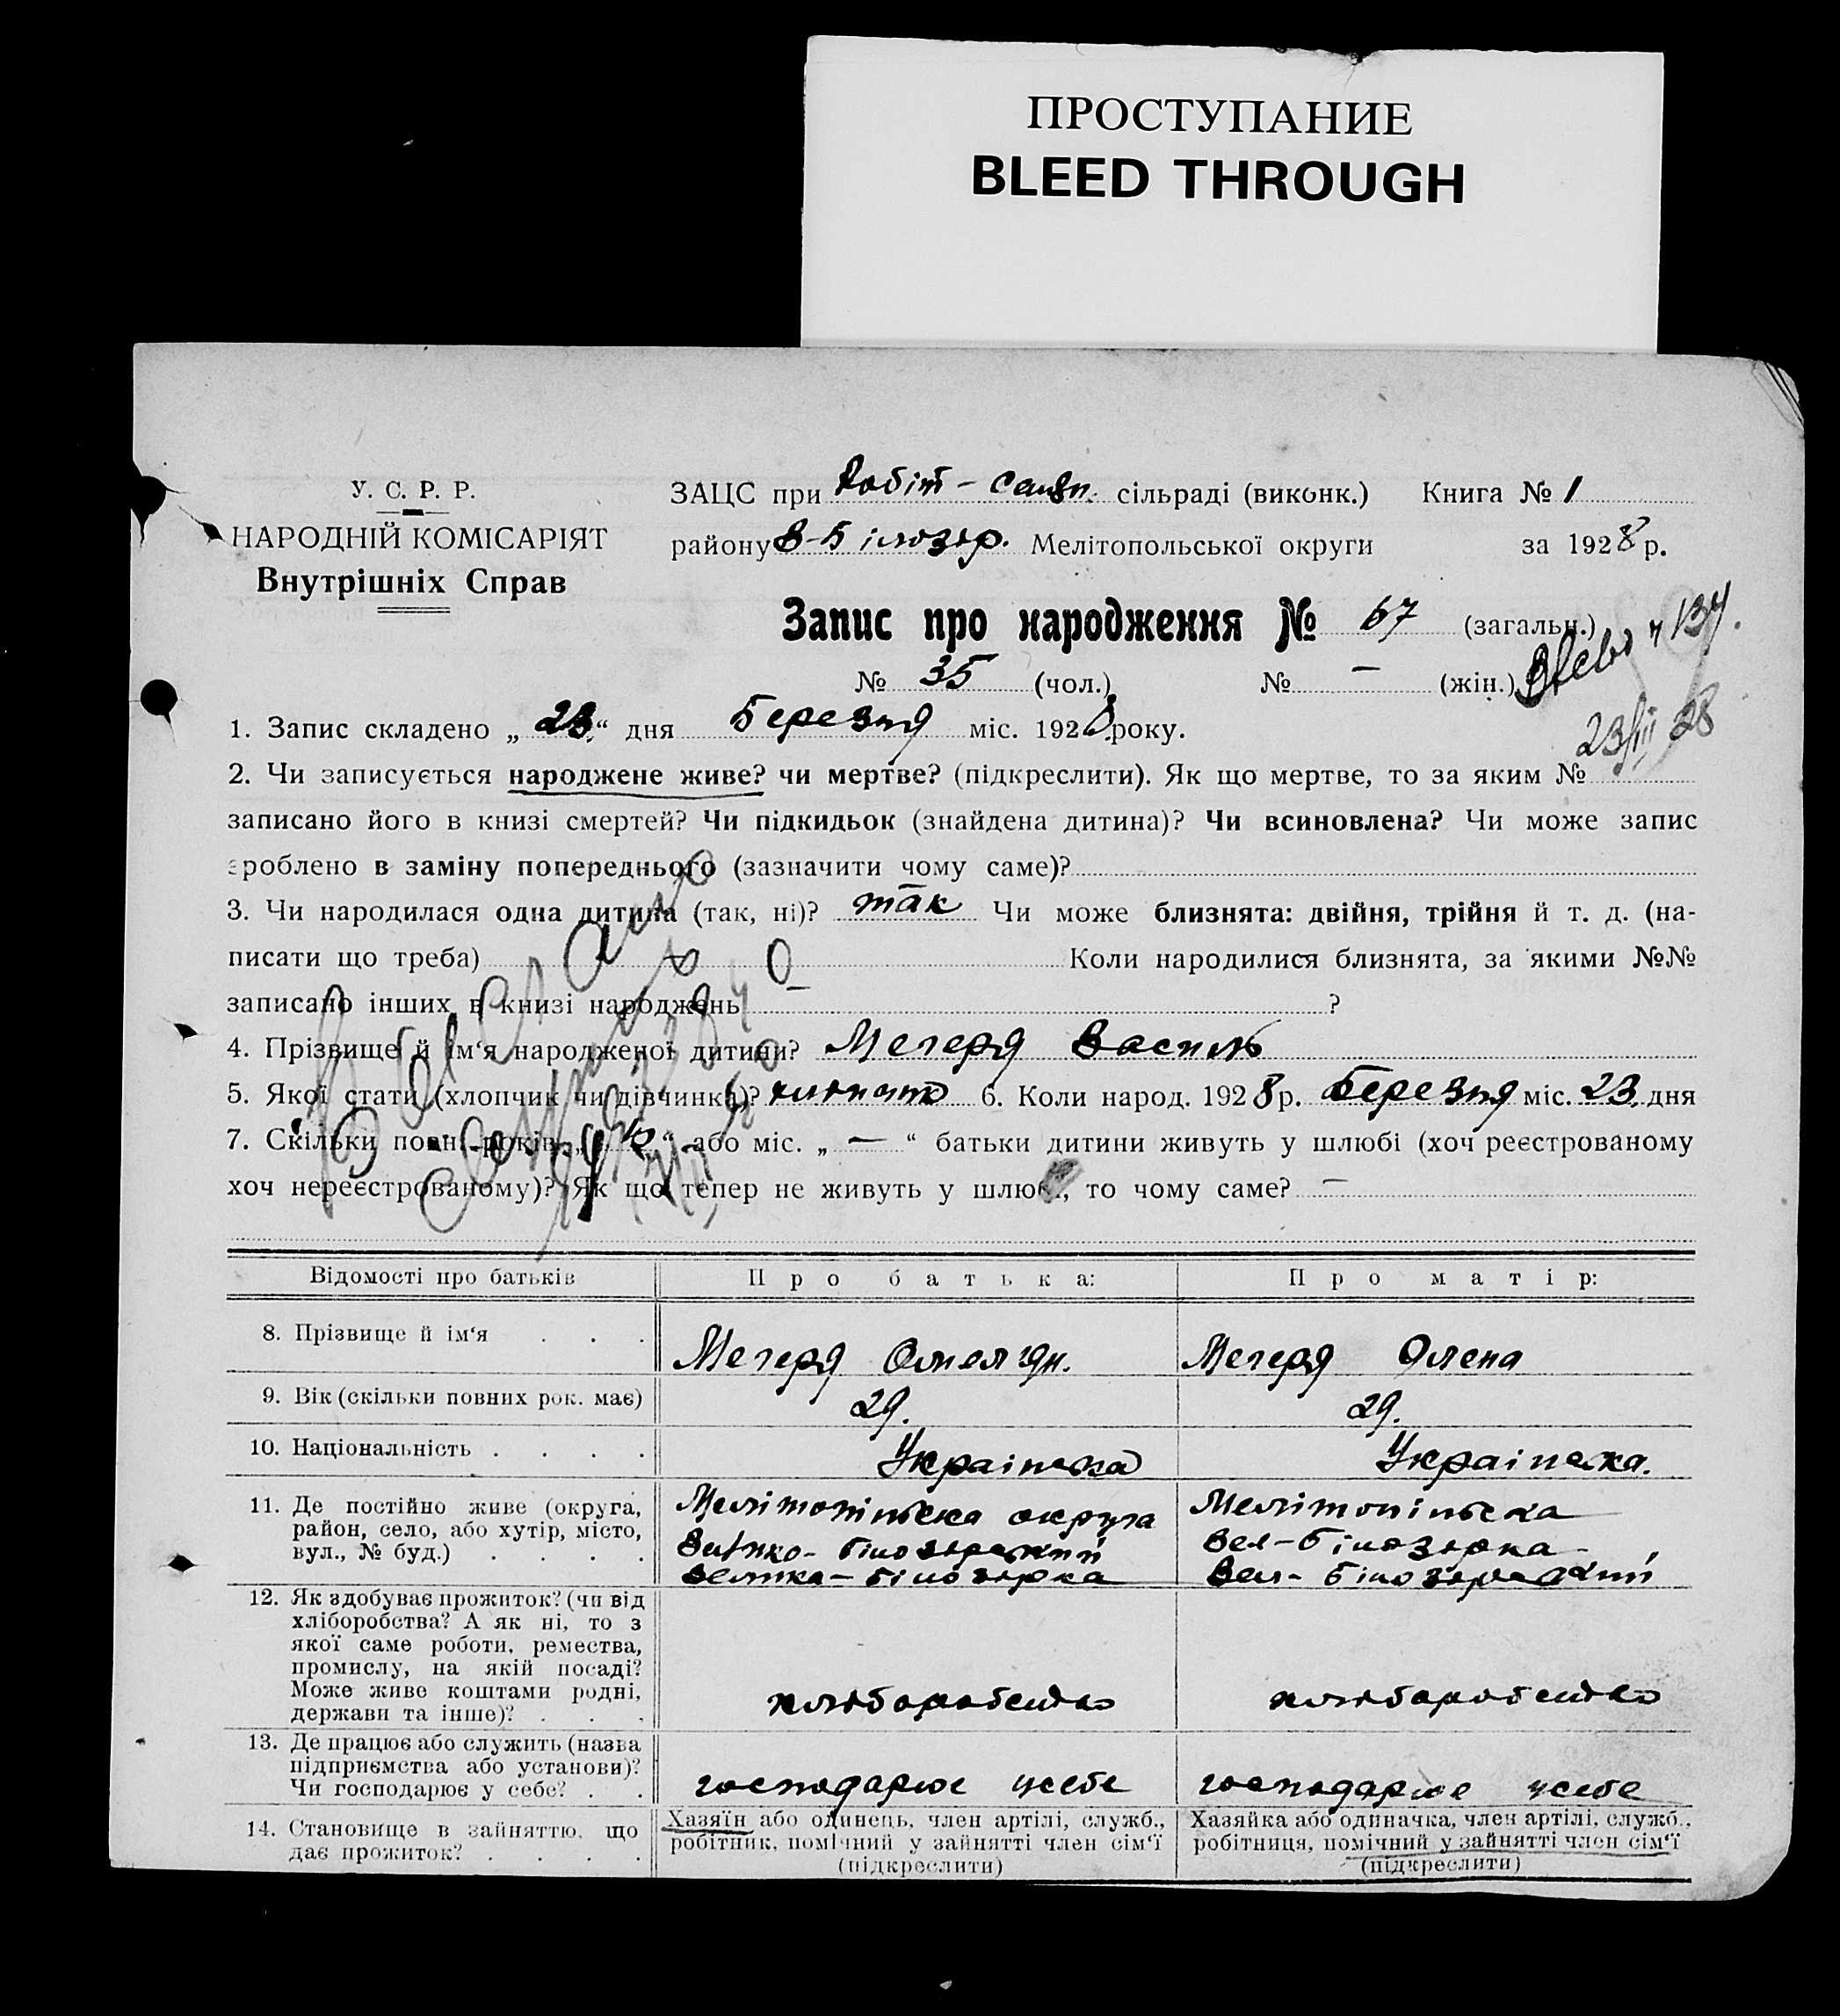 ПРОСТУПАНИЕ
BLEED THROUGH
У. С. Р. Р.
НАРОДНІЙ КОМІСАРІЯТ
Внутрішніх Справ
ЗАЦС при Робіт - сільраді (виконк.) Книга № 1
району В-Білозер. Мелітопольської округи за 1928 р.
Запис про народження № 67 (загальн.)
№ 35 (чол.) № — (жін.)
134.
23/III 28
1. Запис складено „ 23 “ дня Березня міс. 1928 року.
2. Чи записується народжене живе? чи мертве? (підкреслити). Як що мертве, то за яким №
записано його в книзі смертей? Чи підкидьок (знайдена дитина)? Чи всиновлена? Чи може запис
зроблено в заміну попереднього (зазначити чому саме)?
3. Чи народилася одна дитина (так, ні)? так Чи може близнята: двійня, трійня й т. д. (на-
писати що треба) Коли народилися близнята, за якими №№
записано інших в книзі народжень ?
4. Прізвище й ім‘я народженої дитини? Мегеря Василь
5. Якої стати (хлопчик чи дівчинка)? 6. Коли народ. 1928 р. Березня міс. 23. дня
7. Скільки повн. років „ “ або міс. „ — “ батьки дитини живуть у шлюбі (хоч реєстрованому
хоч нереєстрованому)? Як що тепер не живуть у шлюбі, то чому саме? —
Відомості про батьків Про батька: Про матір:
8. Прізвище й ім‘я . . . Мегеря Омелян. Мегеря Олена
9. Вік (скільки повних рок. має) 29. 29.
10. Національність . . . . Українська Українська.
11. Де постійно живе (округа, Мелітопільска округа Мелітопільска
район, село, або хутір, місто, Білозерский Вел-Білозерка-
вул., № буд.) . . . . Велика-Білозерка Вел- Білозерский
12. Як здобуває прожиток? (чи від
хліборобства? А як ні, то з
якої саме роботи, ремества,
промислу, на якій посаді?
Може живе коштами родні, хліборобство хліборобство
держави та інше)? . . .
13. Де працює або служить (назва
підприємства або установи)?
Чи господарює у себе? . . господарює усебе господарює усебе
14. Становище в зайняттю, що
дає прожиток? . . . .
Хазяїн або одинець, член артілі, служб.,
робітник, помічний у зайнятті член сім‘ї
(підкреслити)
Хазяйка або одиначка, член артілі, служб.,
робітниця, помічний у зайнятті член сім‘ї
(підкреслити)